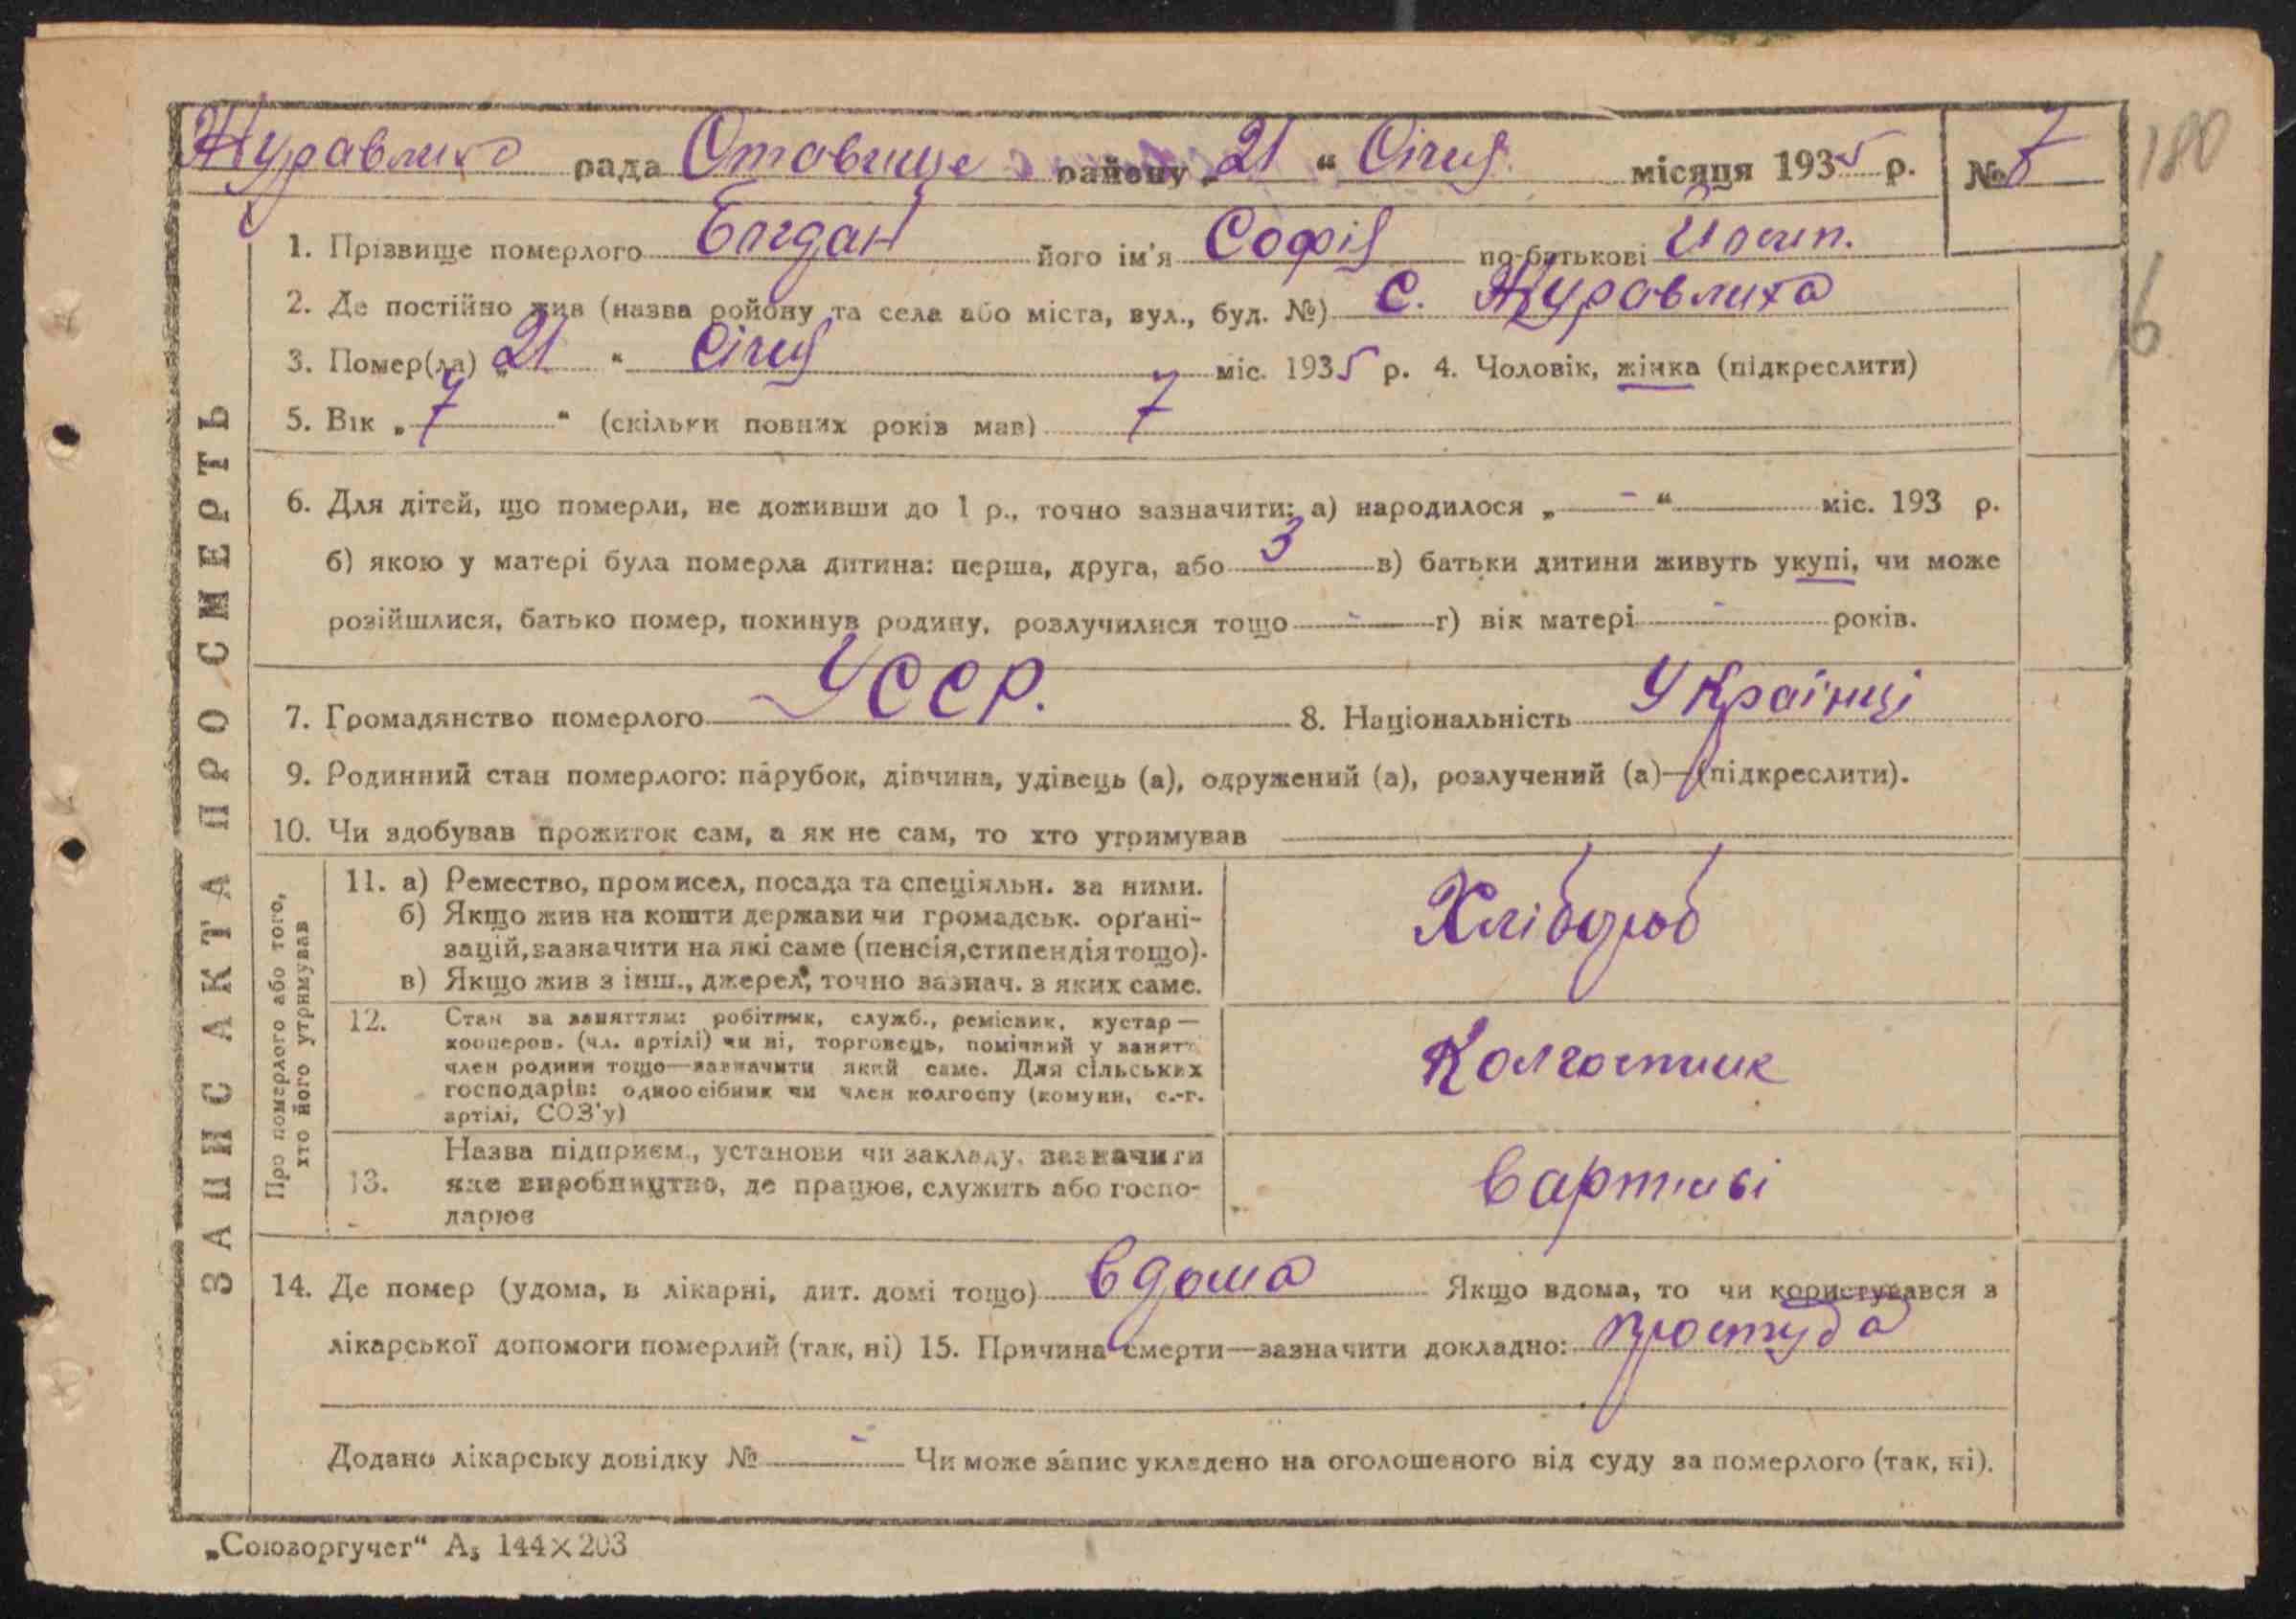 180
Журавлиха рада Ставище району „21“ Січня місяця 1935 р. № 7
1. Прізвище померлого Богдан його ім'я Софія по-батькові Йосип.
6
2. Де постійно жив (назва ройону та села або міста, вул., буд. №) С. Журавлиха
3. Помер(ла) „21“ Січня міс. 1935 р. 4. Чоловік, жінка (підкреслити)
5. Вік „7“ (скільки повних років мав) 7
6. Для дітей, що померли, не доживши до 1 р., точно зазначити: а) народилося „-“ міс. 193 р.
б) якою у матері була померла дитина: перша, друга, або 3 в) батьки дитини живуть укупі, чи може
розійшлися, батько помер, покинув родину, розлучилися тощо - г) вік матері - років.
7. Громадянство померлого УССР. 8. Національність Українці
9. Родинний стан померлого: парубок, дівчина, удівець (а), одружений (а), розлучений (а)—(підкреслити).
10. Чи здобував прожиток сам, а як не сам, то хто утримував
ЗАПИС АКТА ПРО СМЕРТЬ
Про померлого або того,
хто його утримував
11. а) Ремество, промисел, посада та спеціяльн. за ними.
б) Якщо жив на кошти держави чи громадськ. орґані-
зацій, зазначити на які саме (пенсія, стипендія тощо).
в) Якщо жив з інш., джерел, точно зазнач. з яких саме.
Хлібороб
12. Стан за заняттям: робітник, служб., ремісник, кустар—
кооперов. (чл. артілі) чи ні, торговець, помічний у занятт
член родини тощо—зазначити який саме. Для сільських
господарів: одноосібник чи член колгоспу (комуни, с.-г.
артілі, СОЗ'у)
Колгоспник
13. Назва підприєм., установи чи закладу, зазначити
яке виробництво, де працює, служить або госпо-
дарює
Вартилі
14. Де помер (удома, в лікарні, дит. домі тощо) вдома Якщо вдома, то чи користувався з
лікарської допомоги померлий (так, ні) 15. Причина смерти—зазначити докладно: простуда
Додано лікарську довідку № - Чи може запис укладено на оголошеного від суду за померлого (так, ні).
„Союзоргучет“ А₅ 144×203